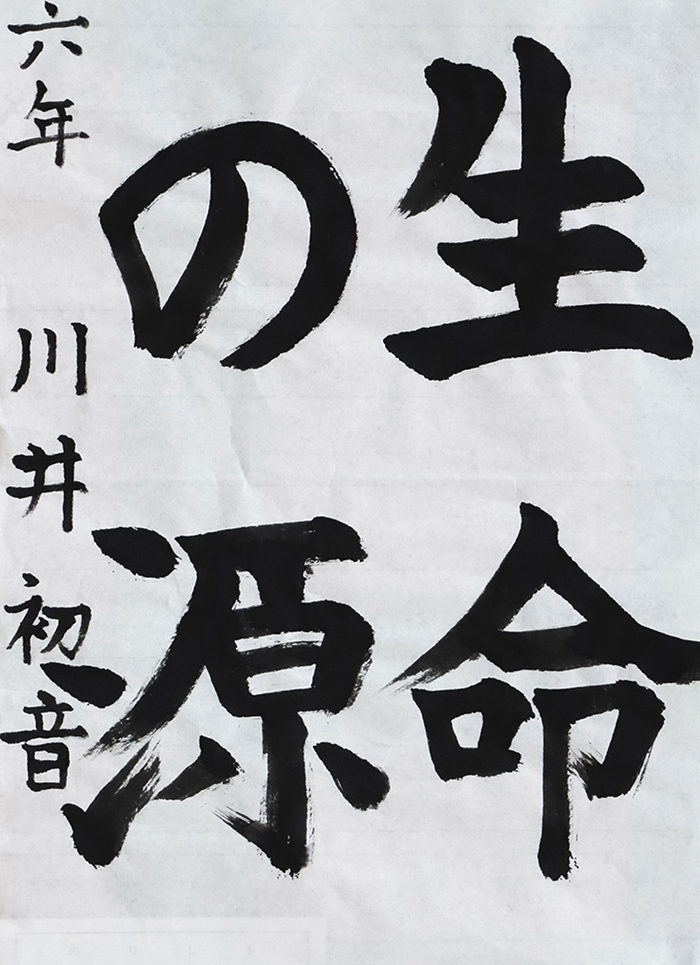 生命
の源
六年 川井初音